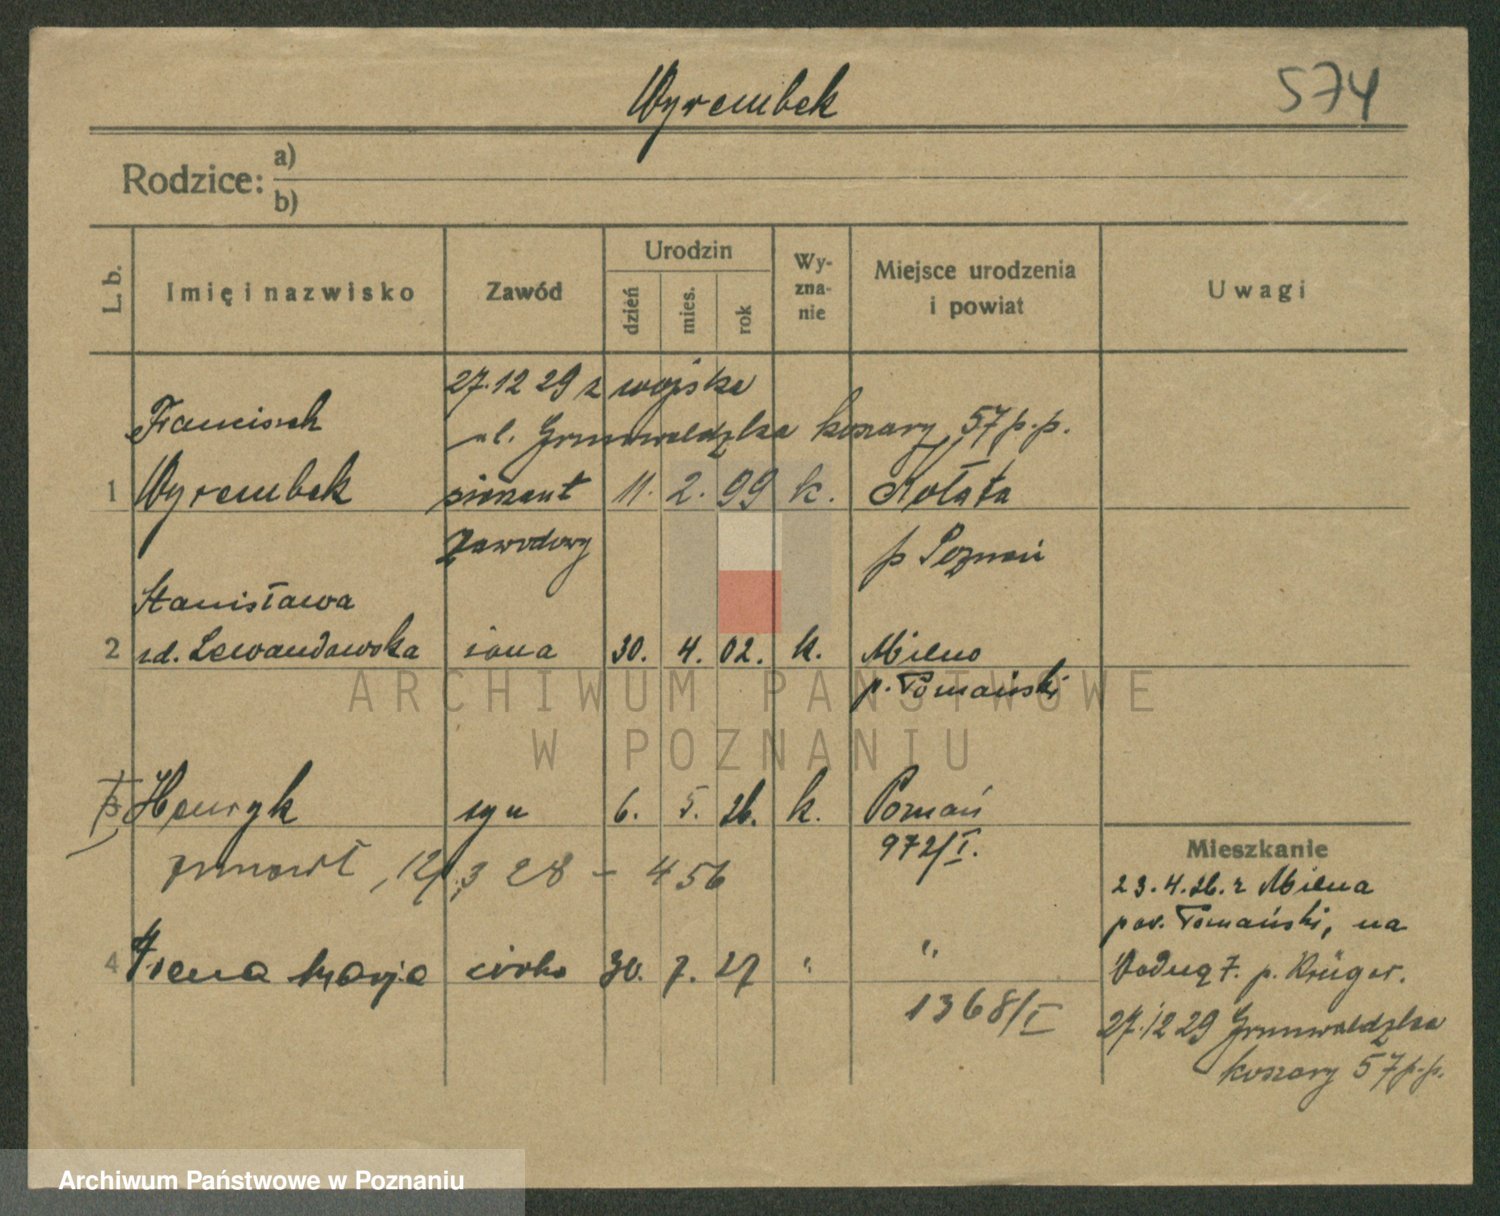 Wyrembek
574
Rodzice: a)
b)
L. b.
Imię i nazwisko
Zawód
Urodzin
dzień
mies.
rok
Wy-
zna-
nie
Miejsce urodzenia
i powiat
Uwagi
27.12 29 z wojska
Franciszek
ul. Grunwaldzka koszary 57 p.p.
1 Wyrembek sierżant 11. 2. 99 k. Kołata
zawodowy p Poznań
Stanisława
2 zd. Lewandowska żona 30. 4. 02. k. Milno
p. Tomański
ARCHIWUM PAŃSTWOWE
W POZNANIU
3 Henryk syn 6. 5. 26. k. Poznań
972/I.
zmarł, 12/3 28 - 456
4 Irena Marja córka 30. 7. 27 " "
1368/I
Mieszkanie
23.4.26. z Milna
pow. Tomański, na
7. p. Krüger.
27.12 29 Grunwaldzka
koszary 57 p.p.
Archiwum Państwowe w Poznaniu